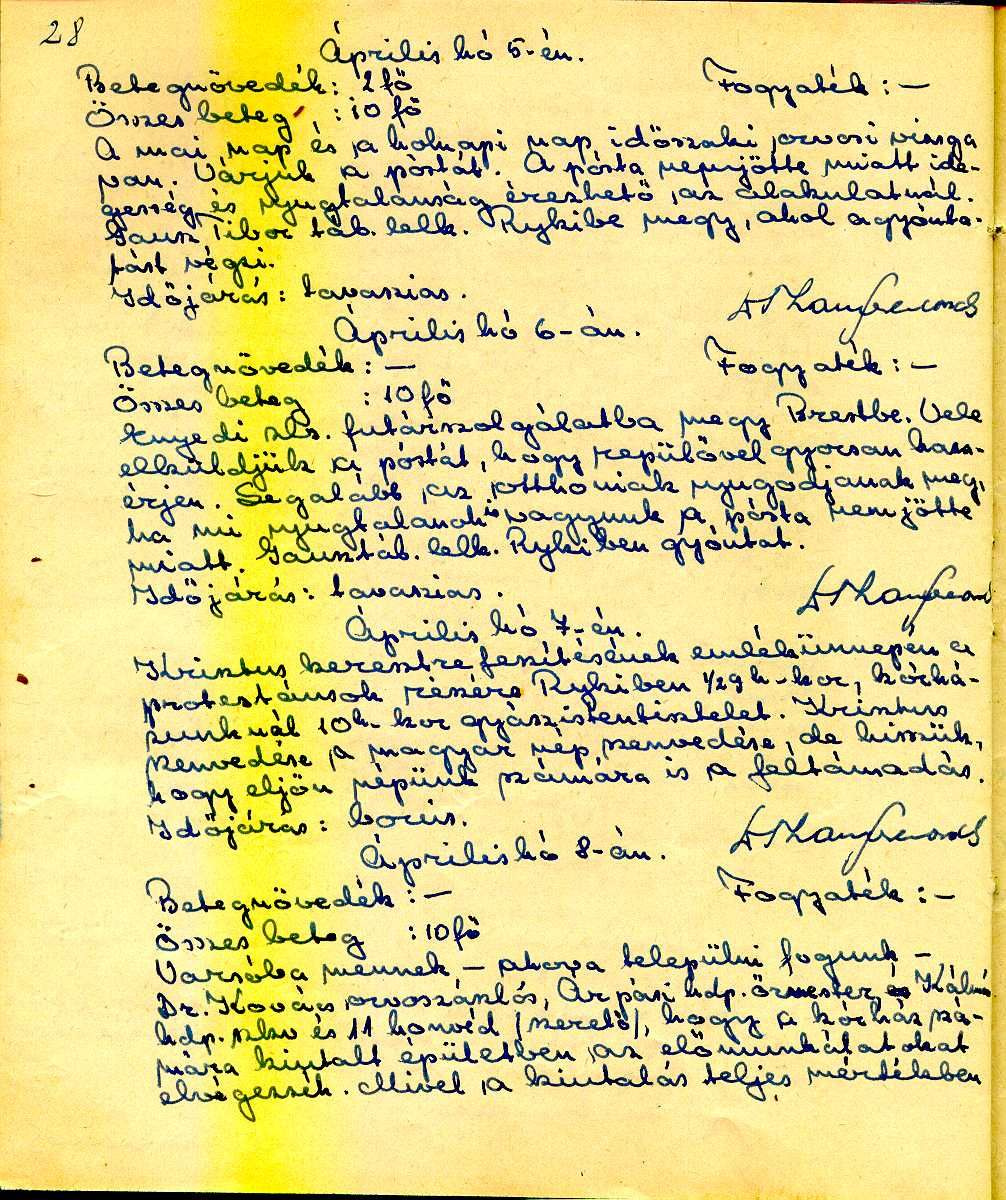 28
Április hó 5-én.
Betegnövedék: 2 fő Fogyaték: —
Összes beteg : 10 fő
A mai nap és a holnapi nap időszaki orvosi vizsga
van. Várjuk a póstát. A pósta nemjötte miatt ide-
gesség és nyugtalanság érezhető az alakulatnál.
Gausz Tibor táb. lelk. Rykibe megy, ahol a gyónta-
tást végzi.
Időjárás: tavaszias.
Április hó 6-án.
Betegnövedék: — Fogyaték: —
Összes beteg : 10 fő
Enyedi szkv. futárszolgálatba megy Brestbe. Vele
elküldjük a póstát, hogy repülővel gyorsan haza-
érjen. Legalább az otthoniak nyugodjanak meg,
ha mi nyugtalanok is vagyunk a pósta nemjötte
miatt. Gausz táb. lelk. Rykiben gyóntat.
Időjárás: tavaszias.
Április hó 7-én.
Krisztus keresztrefeszítésének emlékünnepén a
protestánsok részére Rykiben 1/2 9 h-kor, kórhá-
zunknál 10 h-kor gyászistentisztelet. Krisztus
szenvedése a magyar nép szenvedése, de hisszük,
hogy eljön népünk számára is a feltámadás.
Időjárás: borús.
Április hó 8-án.
Betegnövedék: — Fogyaték: —
Összes beteg : 10 fő
Varsóba mennek — ahova települni fogunk —
Dr. Kovács orvoszászlós, Árpási hdp. őrmester és Kálmán
hdp. szkv és 11 honvéd (szerelő), hogy a kórház szá-
mára kiutalt épületben az előmunkálatokat
elvégezzék. Mivel a kiutalás teljes mértékben